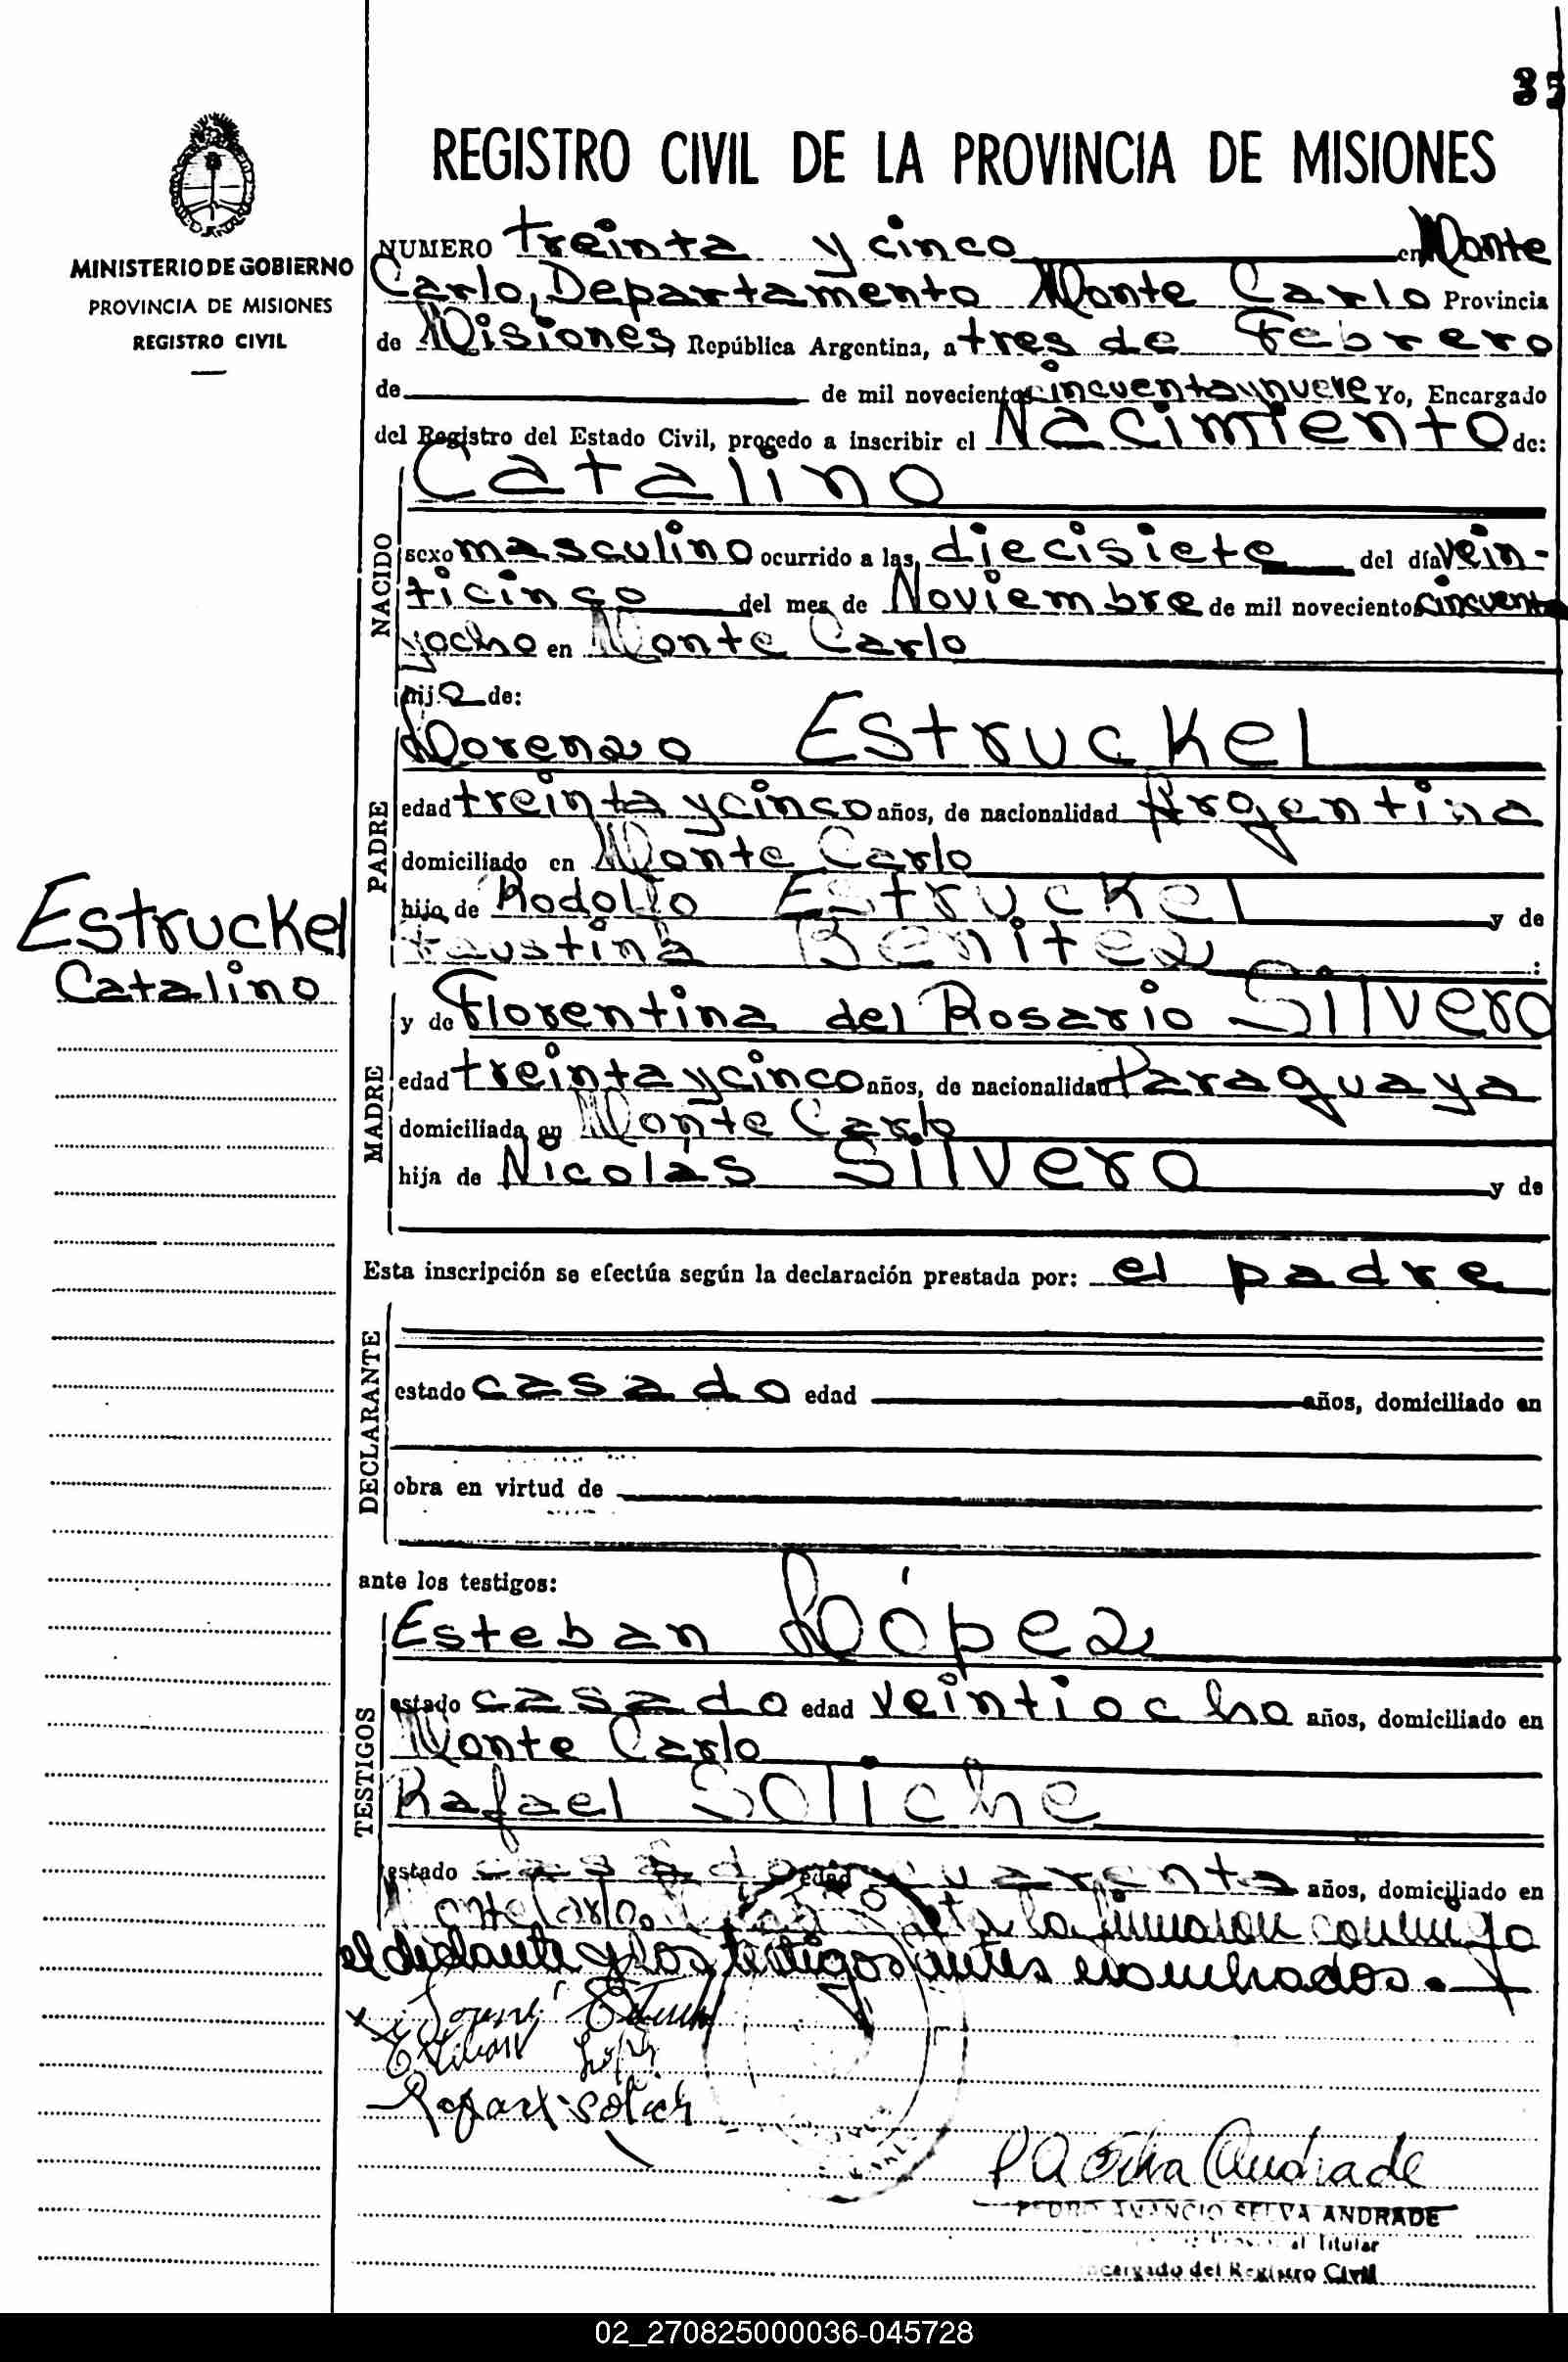 35
REGISTRO CIVIL DE LA PROVINCIA DE MISIONES
MINISTERIO DE GOBIERNO
PROVINCIA DE MISIONES
REGISTRO CIVIL
NUMERO treinta y cinco en Monte
Carlo, Departamento Monte Carlo Provincia
de Misiones República Argentina, a tres de Febrero
de de mil novecientos cincuenta y nueve Yo, Encargado
del Registro del Estado Civil, procedo a inscribir el Nacimiento de:
Catalino
NACIDO
sexo masculino ocurrido a las diecisiete del día vein-
ticinco del mes de Noviembre de mil novecientos cincuenta
y ocho en Monte Carlo
hijo de:
Lorenzo Estruckel
PADRE
edad treinta y cinco años, de nacionalidad Argentina
domiciliado en Monte Carlo
hijo de Rodolfo Estruckel y de
Faustina Benitez :
Estruckel
Catalino
y de Florentina del Rosario Silvero
MADRE
edad treinta y cinco años, de nacionalidad Paraguaya
domiciliada en Monte Carlo
hija de Nicolás Silvero y de
Esta inscripción se efectúa según la declaración prestada por: el padre
DECLARANTE
estado casado edad años, domiciliado en
obra en virtud de
ante los testigos:
Esteban López
TESTIGOS
estado casado edad veintiocho años, domiciliado en
Monte Carlo
Rafael Soliche
estado casado edad cuarenta años, domiciliado en
Monte Carlo. acta la firmaron conmigo
el declarante y los testigos antes nombrados.-
Esteban López
P A Selva Andrade
PEDRO AMANCIO SELVA ANDRADE
Titular
Encargado del Registro Civil
02_270825000036-045728